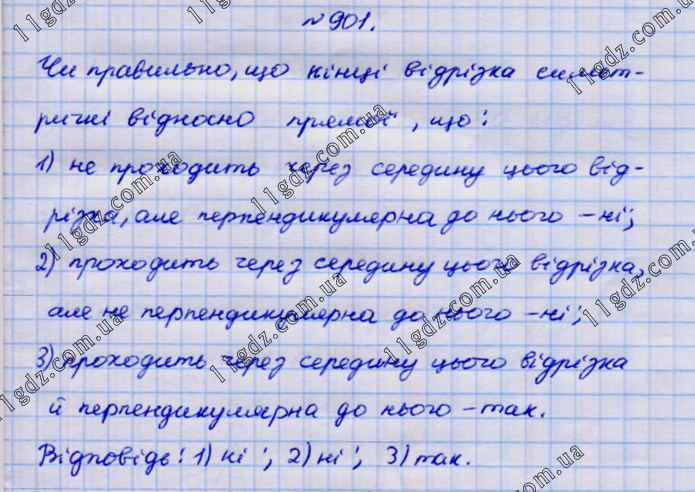 №901.
Чи правильно, що кінці відрізка симет-
ричні відносно прямої, що:
1) не проходить через середину цього від-
різка, але перпендикулярна до нього – ні;
2) проходить через середину цього відрізка,
але не перпендикулярна до нього – ні;
3) проходить через середину цього відрізка
й перпендикулярна до нього – так.
Відповідь: 1) ні; 2) ні; 3) так.
11gdz.com.ua
11gdz.com.ua
11gdz.com.ua
11gdz.com.ua
11gdz.com.ua
11gdz.com.ua
11gdz.com.ua
11gdz.com.ua
11gdz.com.ua